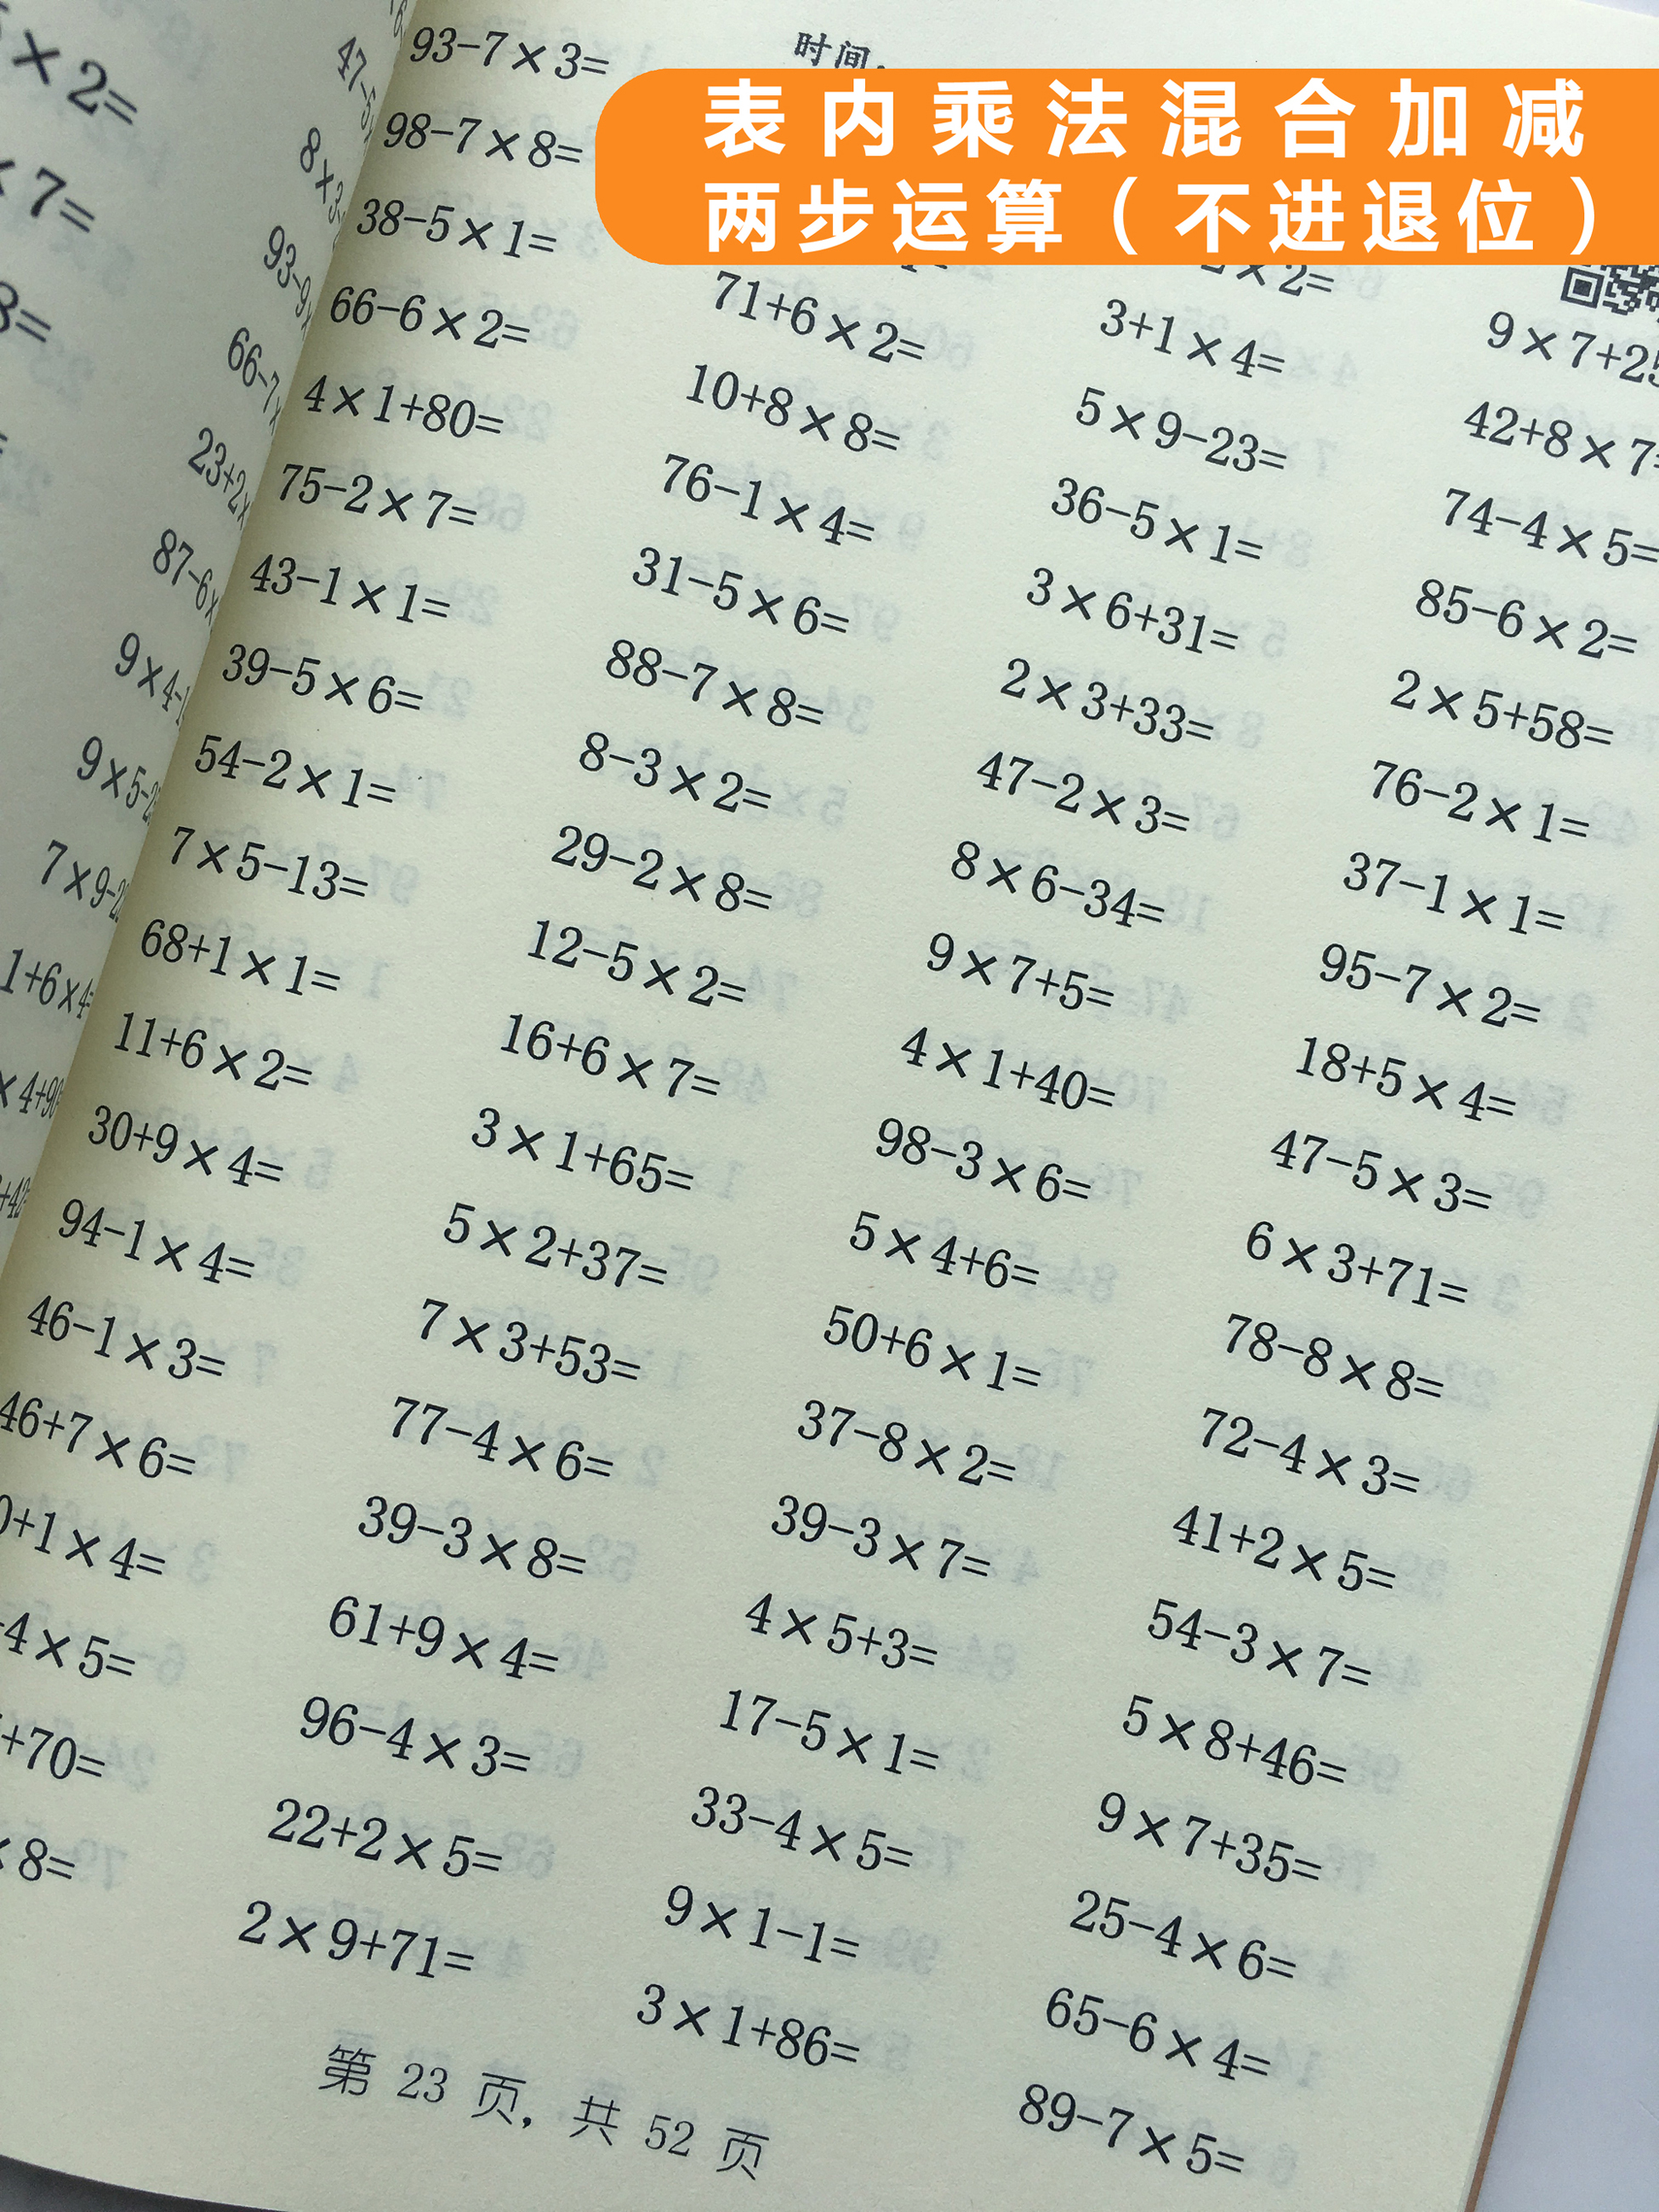 表内乘法混合加减
两步运算（不进退位）
时间
× 2=
7=
47-5
8×3
93-9×
66-7×
23+2×
87-6×
9×4-1
9×5-2
7×9-2
1+6×4
×4+90
+42
93-7×3=
98-7×8=
38-5×1=
66-6×2=
4×1+80=
75-2×7=
43-1×1=
39-5×6=
54-2×1=
7×5-13=
68+1×1=
11+6×2=
30+9×4=
94-1×4=
46-1×3=
46+7×6=
+1×4=
4×5=
+70=
8=
71+6×2=
10+8×8=
76-1×4=
31-5×6=
88-7×8=
8-3×2=
29-2×8=
12-5×2=
16+6×7=
3×1+65=
5×2+37=
7×3+53=
77-4×6=
39-3×8=
61+9×4=
96-4×3=
22+2×5=
2×9+71=
×2=
3+1×4=
5×9-23=
36-5×1=
3×6+31=
2×3+33=
47-2×3=
8×6-34=
9×7+5=
4×1+40=
98-3×6=
5×4+6=
50+6×1=
37-8×2=
39-3×7=
4×5+3=
17-5×1=
33-4×5=
9×1-1=
3×1+86=
9×7+25
42+8×7=
74-4×5=
85-6×2=
2×5+58=
76-2×1=
37-1×1=
95-7×2=
18+5×4=
47-5×3=
6×3+71=
78-8×8=
72-4×3=
41+2×5=
54-3×7=
5×8+46=
9×7+35=
25-4×6=
65-6×4=
89-7×5=
第 23 页, 共 52 页